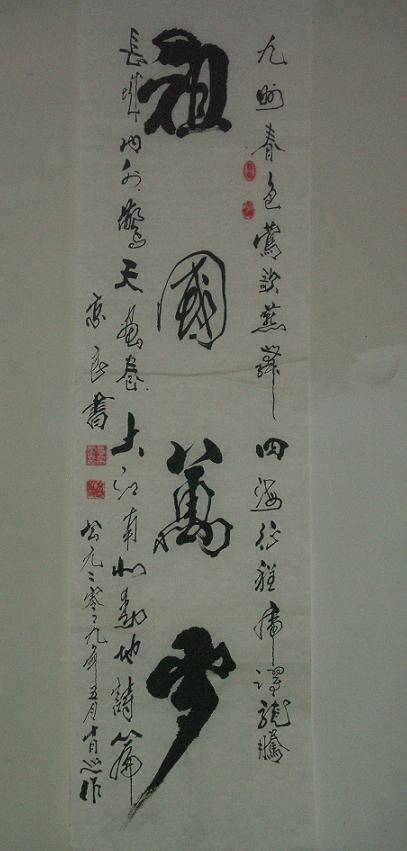 九州春色鶯歌燕舞四海征程虎躍龍騰
祖國萬歲
長城內外驚天畫卷大江南北動地詩篇
良書
公元二零零九年五月作